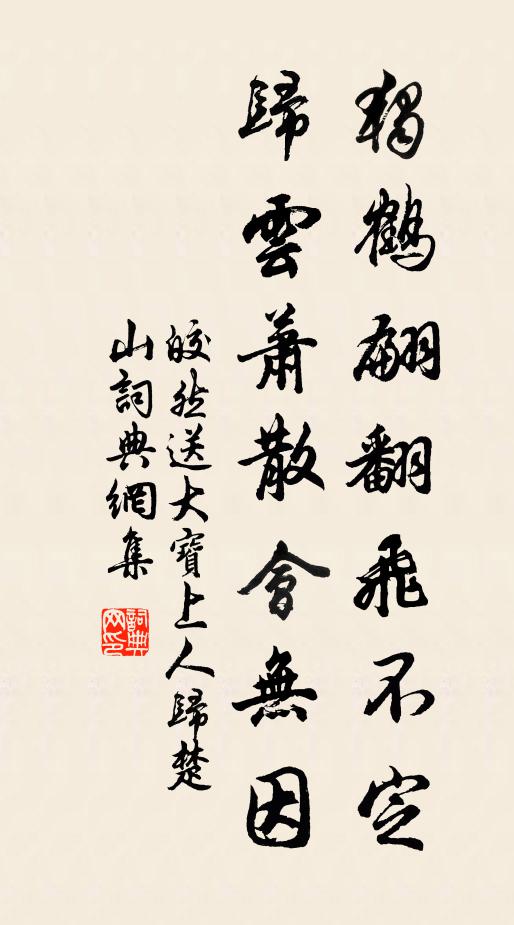 獨鶴翩翻飛不定
歸雲蕭散會無因
皎然送大寶上人歸楚
山詞典網集
詞典網印